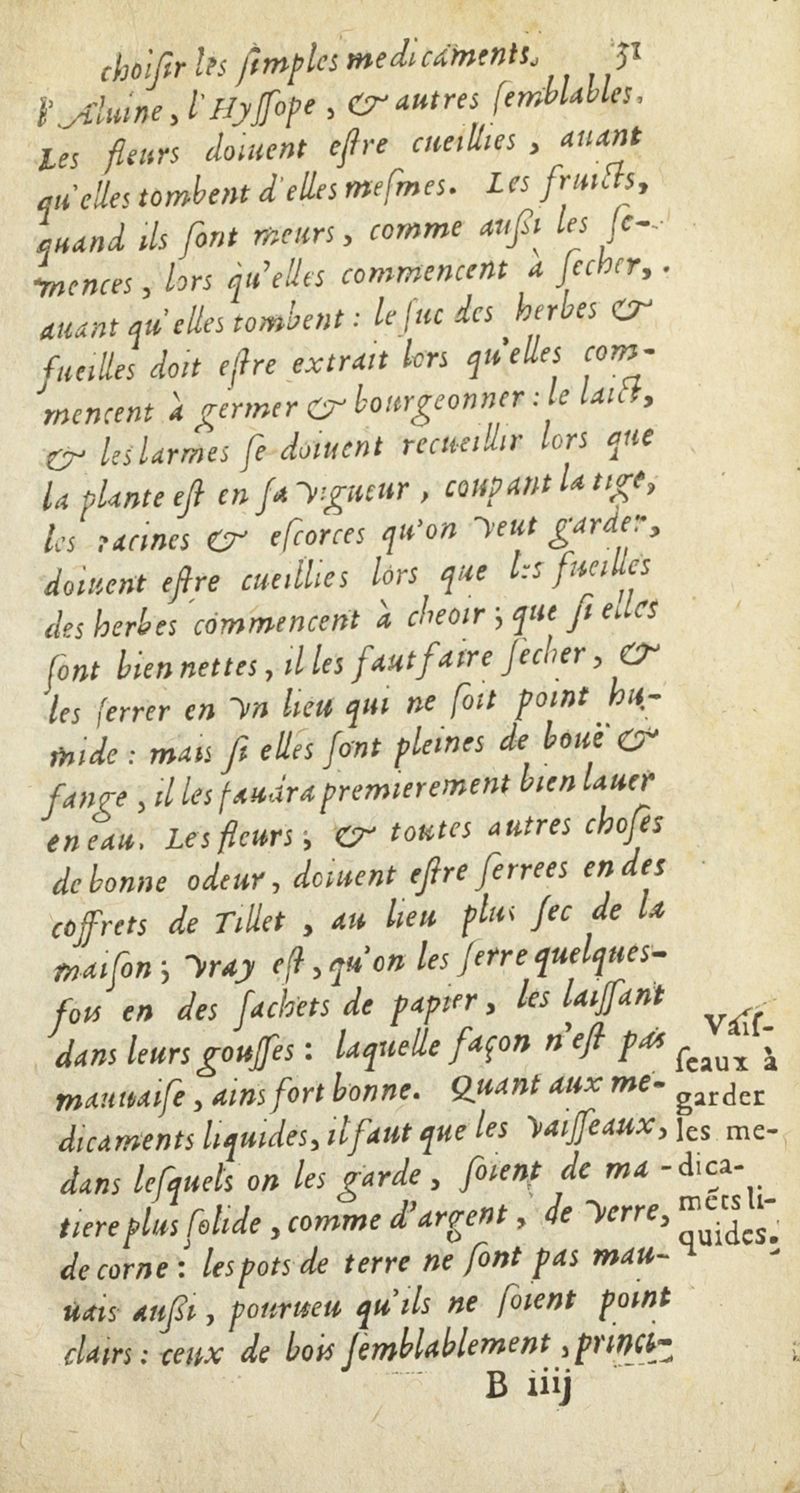 choiſir les ſimples medicaments. 31
l'Aluine, l'Hyſſope, & autres ſemblables.
Les fleurs doiuent eſtre cueillies, auant
qu'elles tombent d'elles meſmes. Les fruicts,
quand ils ſont meurs, comme auſsi les ſe-
mences, lors qu'elles commencent à ſecher,
auant qu'elles tombent : le ſuc des herbes &
fueilles doit eſtre extrait lors qu'elles com-
mencent à germer & bourgeonner : le laict,
& les larmes ſe doiuent recueillir lors que
la plante eſt en ſa vigueur, coupant la tige,
les racines & eſcorces qu'on veut garder,
doiuent eſtre cueillies lors que les fueilles
des herbes commencent à cheoir ; que ſi elles
ſont bien nettes, il les faut faire ſecher, &
les ſerrer en vn lieu qui ne ſoit point hu-
mide : mais ſi elles ſont pleines de bouë &
fange, il les faudra premierement bien lauer
en eau. Les fleurs ; & toutes autres choſes
de bonne odeur, doiuent eſtre ſerrees en des
coffrets de Tillet, au lieu plus ſec de la
maiſon ; vray eſt, qu'on les ſerre quelques-
fois en des ſachets de papier, les laiſſant
dans leurs gouſſes : laquelle façon n'eſt pas
mauuaiſe, ains fort bonne. Quant aux me-
dicaments liquides, il faut que les vaiſſeaux,
dans leſquels on les garde, ſoient de ma-
tiere plus ſolide, comme d'argent, de verre,
de corne : les pots de terre ne ſont pas mau-
uais auſsi, pourueu qu'ils ne ſoient point
clairs : ceux de bois ſemblablement, princi-
B iiij
Vaiſ-
ſeaux à
garder
les me-
dica-
mẽts li-
quides.